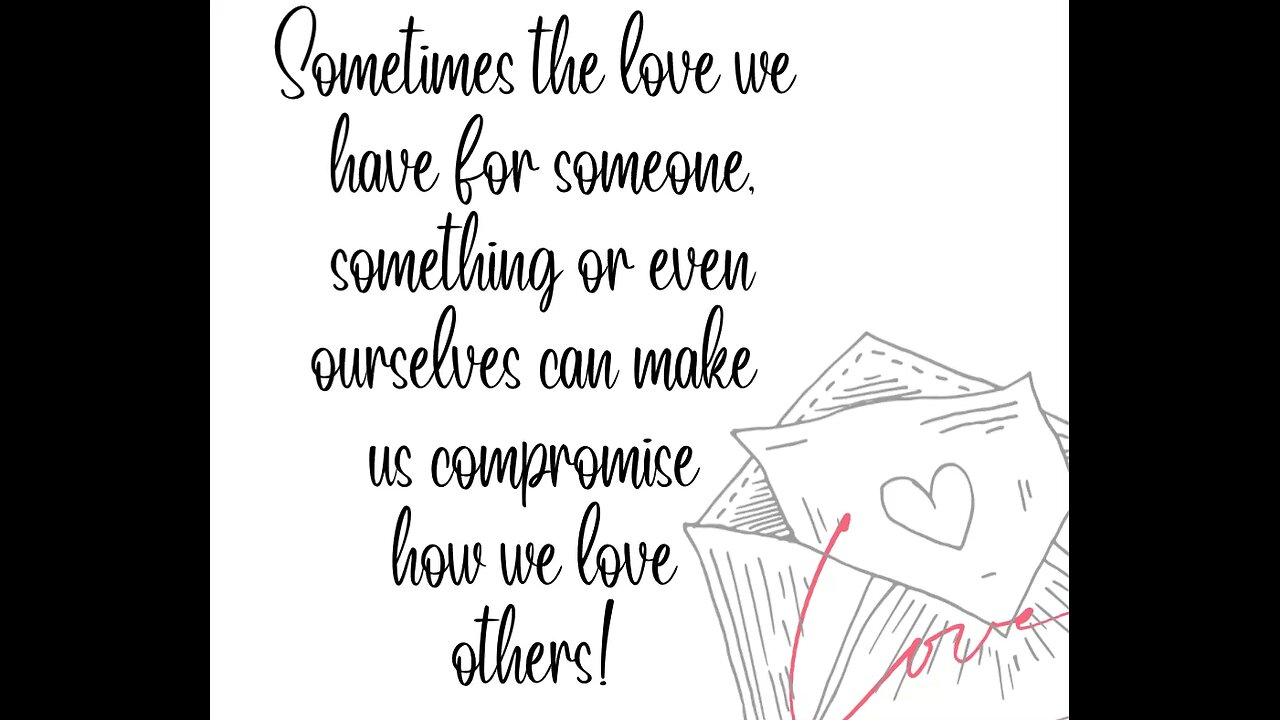 Sometimes the love we
have for someone,
something or even
ourselves can make
us compromise
how we love
others!
Love